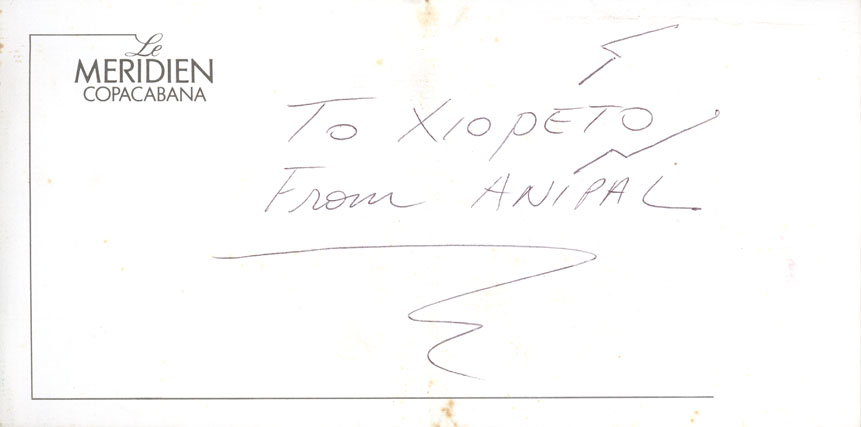 Le
MERIDIEN
COPACABANA
To XIOPETO
From ANIPAL